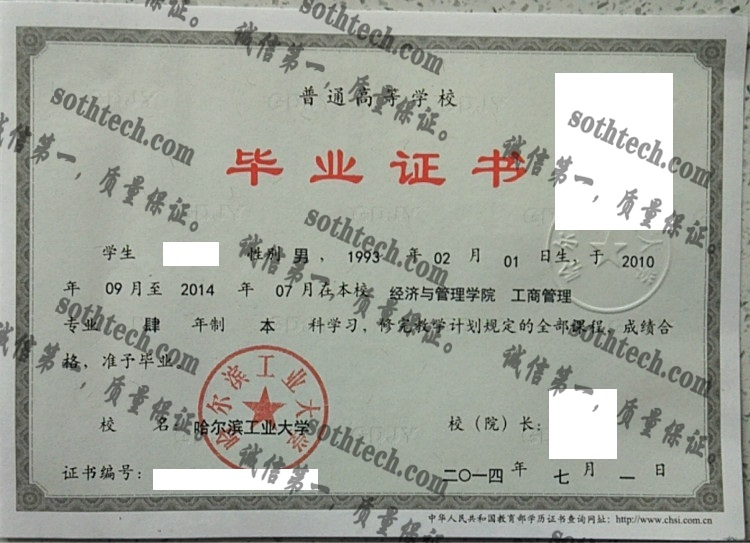 普通高等学校
毕业证书
学生 性别 男 ，1993 年 02 月 01 日生，于 2010
年 09 月至 2014 年 07 月在本校 经济与管理学院 工商管理
专业 肆 年制 本 科学习，修完教学计划规定的全部课程，成绩合
格，准予毕业。
哈尔滨工业大学
校 名：哈尔滨工业大学 校（院）长：
证书编号： 二〇一四 年 七 月 一 日
中华人民共和国教育部学历证书查询网址：http://www.chsi.com.cn
sothtech.com
诚信第一，质量保证。
sothtech.com
诚信第一，质量保证。
sothtech.com
诚信第一，质量保证。
sothtech.com
诚信第一，质量保证。
sothtech.com
诚信第一，质量保证。
sothtech.com
诚信第一，质量保证。
sothtech.com
诚信第一，质量保证。
sothtech.com
诚信第一，质量保证。